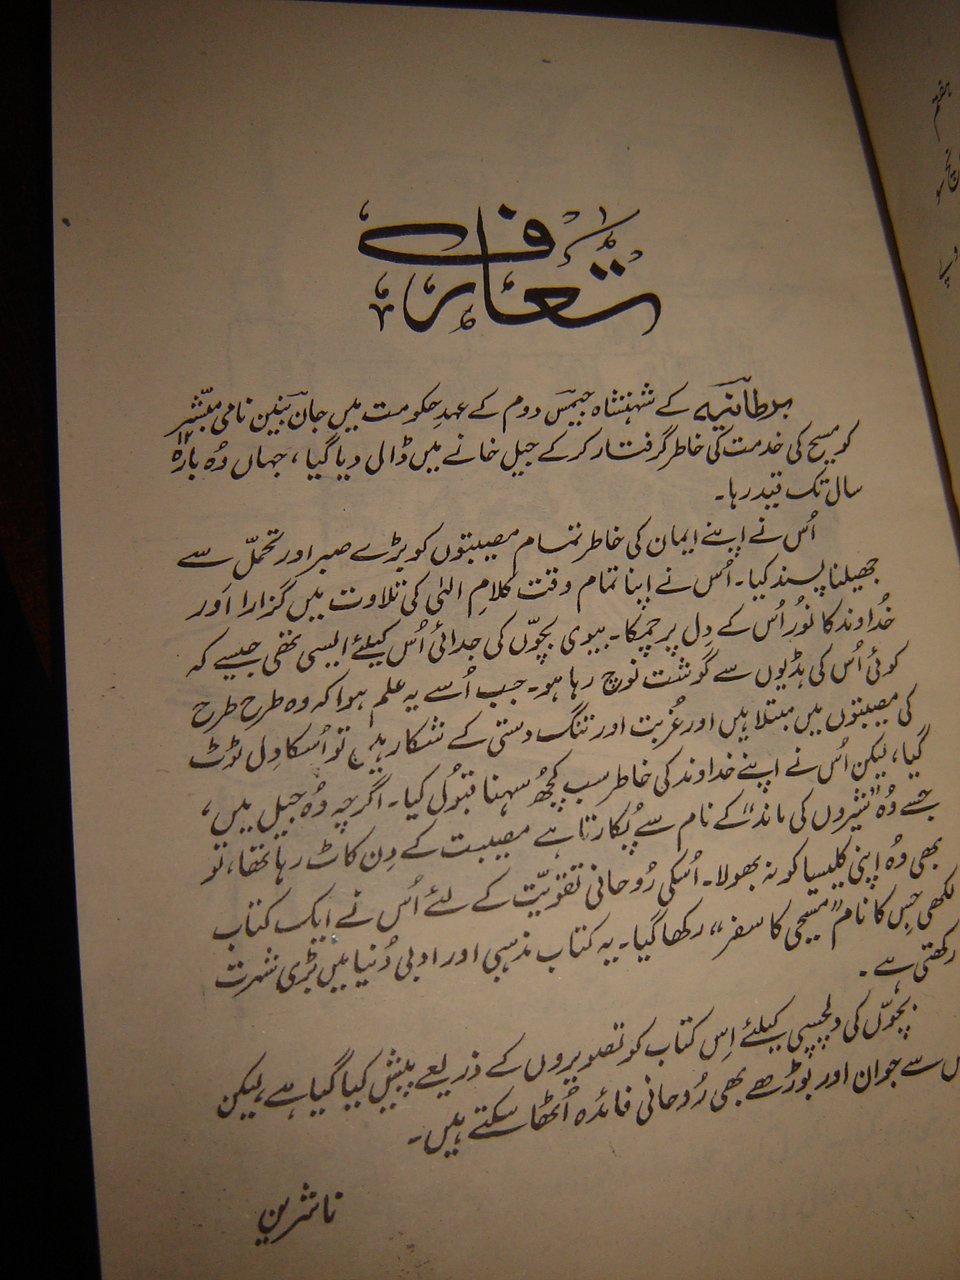 تعارف
برطانیہ کے شہنشاہ جیمس دوم کے عہدِ حکومت میں جان بنین نامی مبشّر
کو مسیح کی خدمت کی خاطر گرفتار کر کے جیل خانے میں ڈال دیا گیا، جہاں وُہ بارہ ۱۲
سال تک قید رہا۔
اُس نے اپنے ایمان کی خاطر تمام مصیبتوں کو بڑے صبر اور تحملّ سے
جھیلنا پسند کیا۔ اُس نے اپنا تمام وقت کلامِ الہٰی کی تلاوت میں گزارا اور
خُداوند کا نُور اُس کے دِل پر چمکا۔ بیوی بچوّں کی جدائی اُس کیلئے ایسی تھی جیسے کہ
کوئی اُس کی ہڈیوں سے گوشت نوچ رہا ہو۔ جب اُسے یہ علم ہوا کہ وہ طرح طرح
کی مصیبتوں میں مبتلا ہیں اور غُربت اور تنگ دستی کے شکار ہیں تو اُسکا دِل ٹوٹ
گیا، لیکن اُس نے اپنے خداوند کی خاطر سب کچھُ سہنا قبوُل کیا۔ اگرچہ وُہ جیل میں،
جسے وُہ ”شیروں کی ماند“ کے نام سے پُکارتا ہے مصیبت کے دِن کاٹ رہا تھا، تو
بھی وُہ اپنی کلیسیا کو نہ بھولا۔ اُسکی رُوحانی تقویّت کے لئے اُس نے ایک کتاب
لکھی جِس کا نام ”مسیحی کا سفر“ رکھا گیا۔ یہ کتاب مذہبی اور ادبی دُنیا میں بڑی شہرت
رکھتی ہے۔
بچوّں کی دلچسپی کیلئے اِس کتاب کو تصویروں کے ذریعے پیش کیا گیا ہے، لیکن
سے جوان اور بوُڑھے بھی رُوحانی فائدہ اُٹھا سکتے ہیں۔
ناشرین
ہفتم